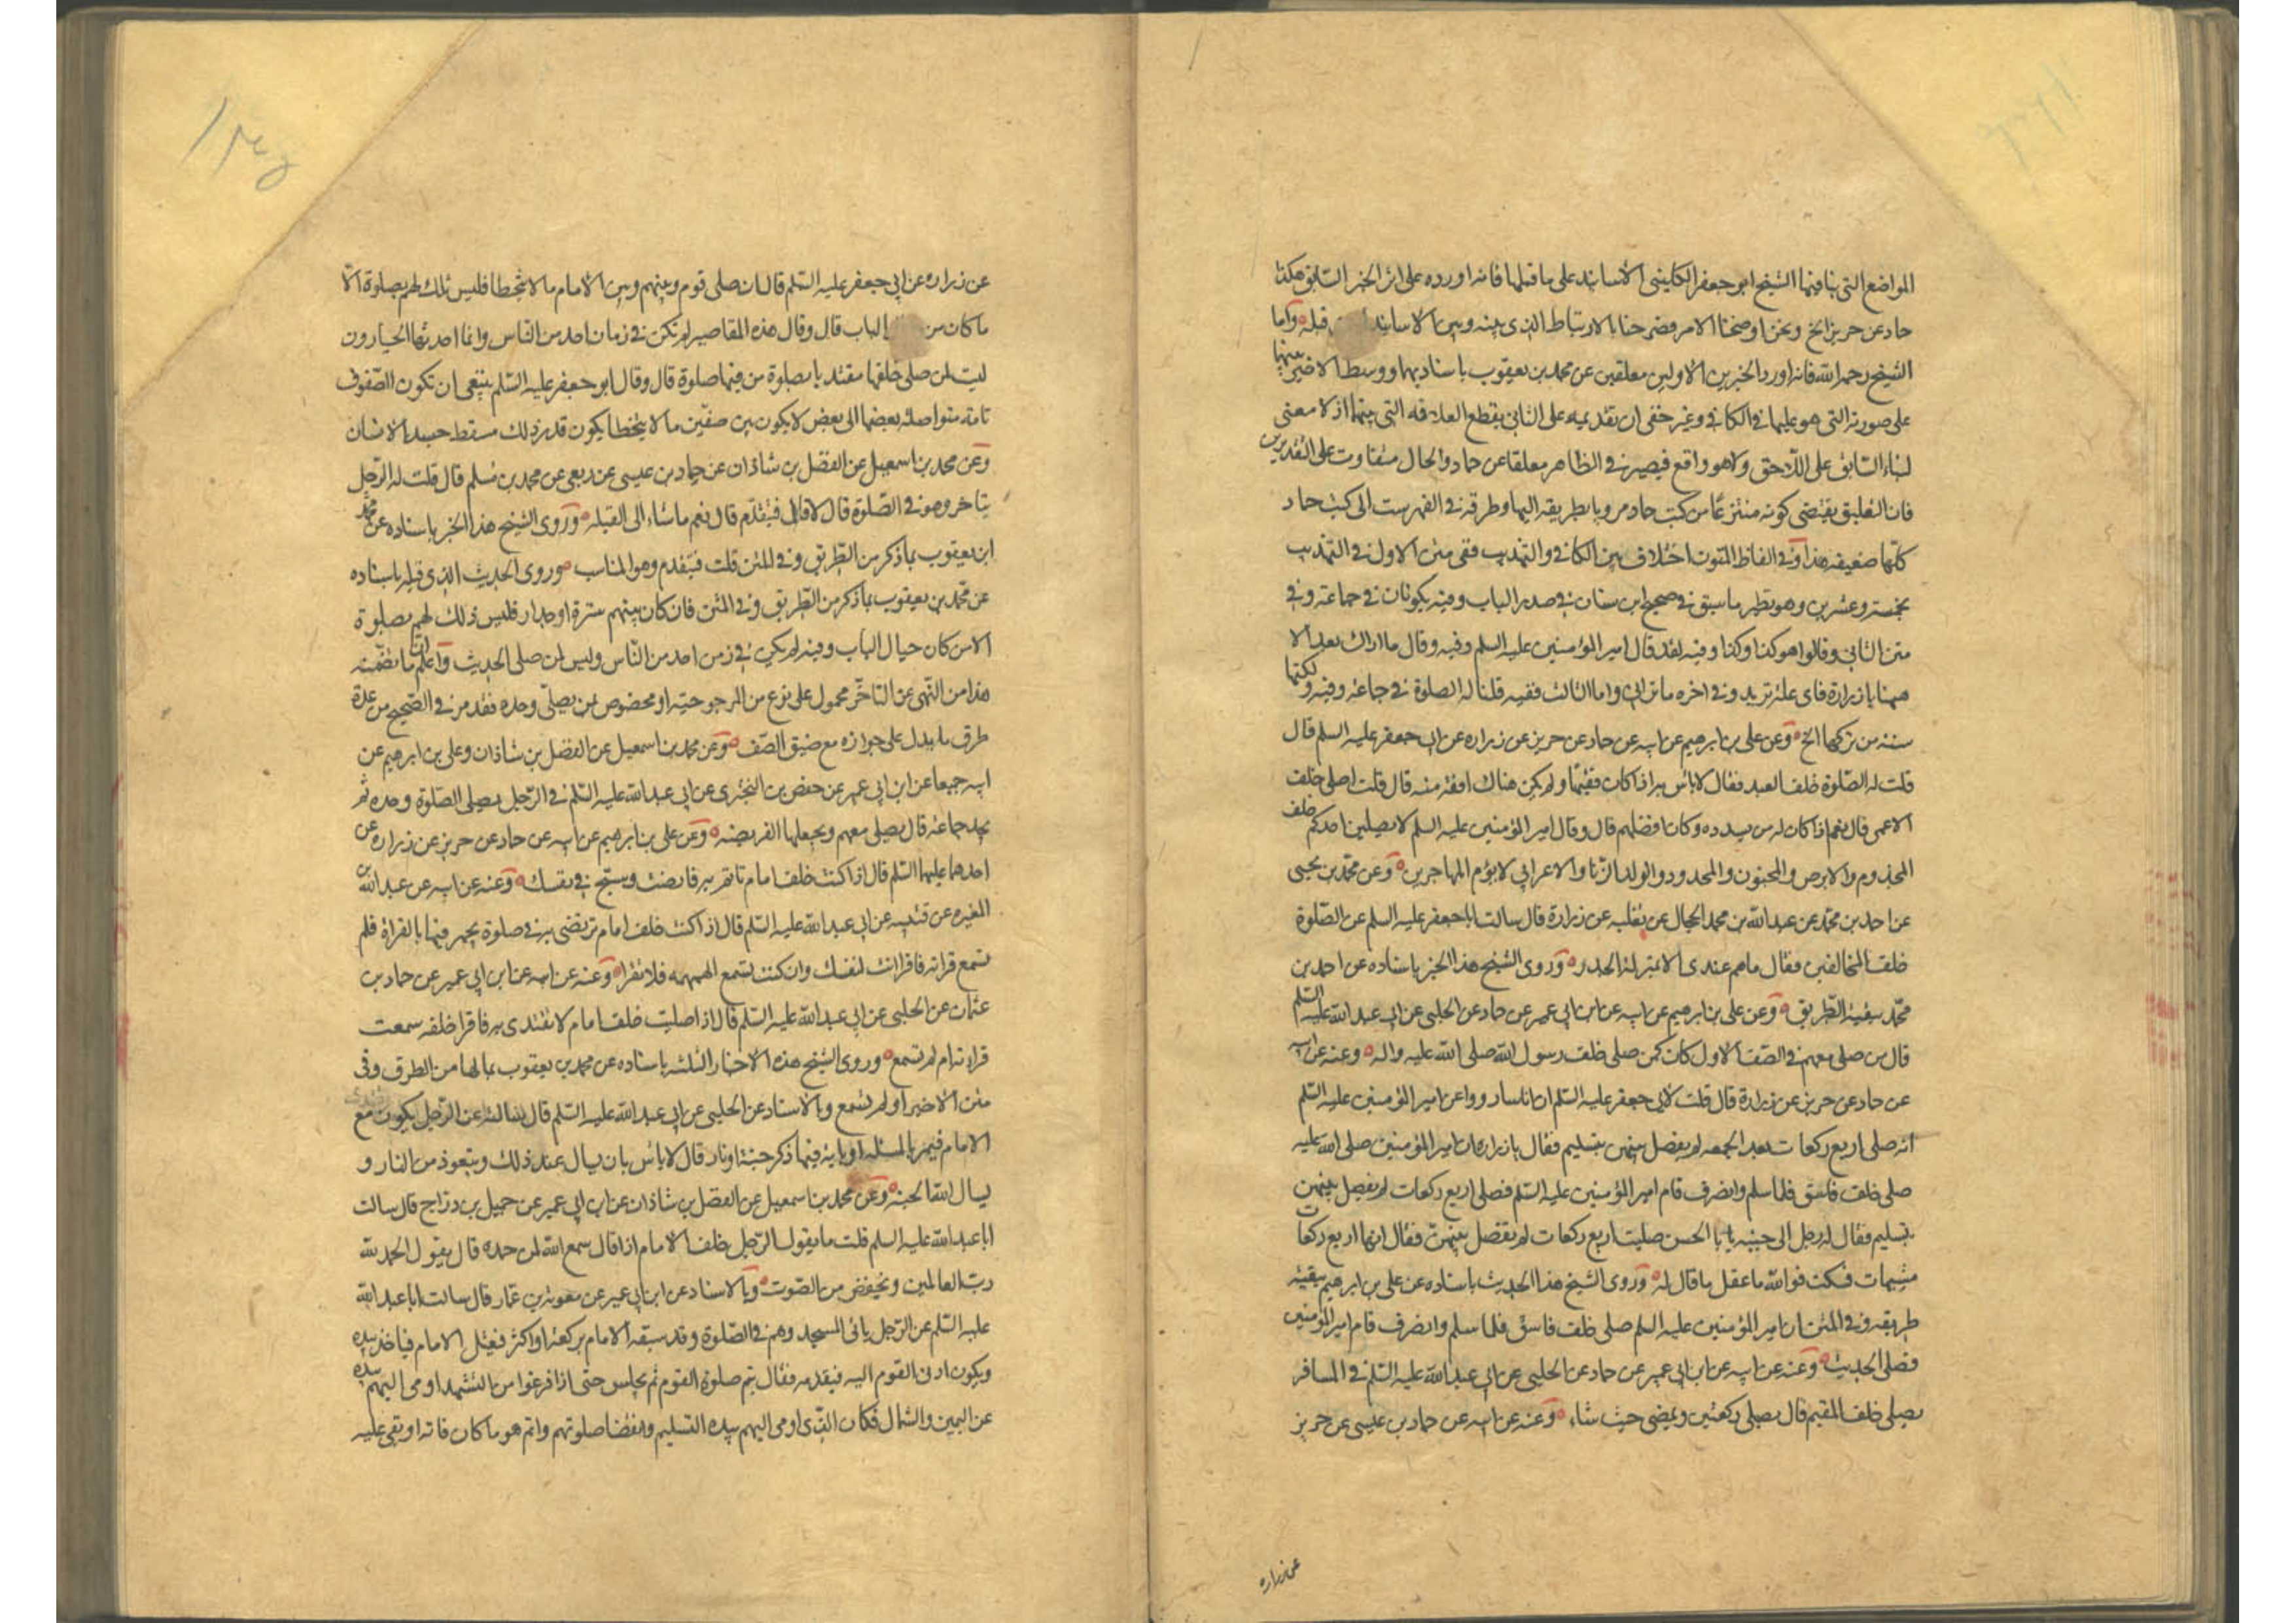 المواضع التى بنا فيها الشيخ ابو جعفر الكلينى الاسانيد على ما قبلها فانه اورده على اثر الخبر السابق هكذا
حماد عن حريز الخ ونحن اوضحنا الامر فصرحنا بالارتباط الذى بينه وبين الاسانيد قبله وآما
الشيخ رحمه الله فانه اورد الخبرين الاولين معلقين عن محمد بن يعقوب باسناديهما ووسط الاخير بينهما
على صورته التى هو عليها فى الكافى وغير خفى ان تقديمه على الثانى يقطع العلاقه التى بينهما اذ لا معنى
لبناء السابق على اللاحق ولا هو واقع فيصير فى الظاهر معلقا عن حماد والحال متفاوت على التقديرين
فان التعليق يقتضى كونه منتزعا من كتب حماد مرويا بطريقه اليها وطرقه فى الفهرست الى كتب حماد
كلها ضعيفه هذا وفى الفاظ المتون اختلاف بين الكافى والتهذيب ففى متن الاول فى التهذيب
بخمسة وعشرين وهو نظير ما سبق فى صحيح ابن سنان فى صدر الباب وفيه يكونان فى جماعة وفى
متن الثانى وقالوا هو كذا وكذا وفيه لقد قال امير المؤمنين عليه السلم وفيه وقال ما اراك بعد الا
ههنا يا زرارة فاى علة تريد وفى اخره ما ترانى واما الثالث ففيه قلنا له الصلوة فى جماعة وفيه ولكنها
سنه من تركها الخ وعن على بن ابرهيم عن ابيه عن حماد عن حريز عن زراره عن ابى جعفر عليه السلم قال
قلت له الصلوة خلف العبد فقال لا باس به اذا كان فقيها ولم يكن هناك افقه منه قال قلت اصلى خلف
الاعمى قال نعم اذا كان له من يسدده وكان افضلهم قال وقال امير المؤمنين عليه السلم لا يصلين احدكم خلف
المجذوم والابرص والمجنون والمحدود والولد الزنا والاعرابى لا يؤم المهاجرين وعن محمد بن يحيى
عن احمد بن محمد عن عبد الله بن محمد الحجال عن ثعلبه عن زرارة قال سالت ابا جعفر عليه السلم عن الصلوة
خلف المخالفين فقال ما هم عندى الا بمنزلة الجدر وروى الشيخ هذا الخبر باسناده عن احمد بن
محمد ببقية الطريق وعن على بن ابرهيم عن ابيه عن ابن ابى عمير عن حماد عن الحلبى عن ابى عبد الله عليه السلم
قال من صلى معهم فى الصف الاول كان كمن صلى خلف رسول الله صلى الله عليه واله وعنه عن ابيه
عن حماد عن حريز عن زرارة قال قلت لابى جعفر عليه السلم ان اناسا رووا عن امير المؤمنين عليه السلم
انه صلى اربع ركعات بعد الجمعه لم يفصل بينهن بتسليم فقال يا زراره ان امير المؤمنين صلى الله عليه
صلى خلف فاسق فلما سلم وانصرف قام امير المؤمنين عليه السلم فصلى اربع ركعات لم يفصل بينهن
بتسليم فقال له رجل الى جنبه يا با الحسن صليت اربع ركعات لم تفصل بينهن فقال انها اربع ركعات
مشبهات فسكت فوالله ما عقل ما قال له وروى الشيخ هذا الحديث باسناده عن على بن ابرهيم ببقية
طريقه وفى المتن ان امير المؤمنين عليه السلم صلى خلف فاسق فلما سلم وانصرف قام امير المؤمنين
فصلى الحديث وعنه عن ابيه عن ابن ابى عمير عن حماد عن الحلبى عن ابى عبد الله عليه السلم فى المسافر
يصلى خلف المقيم قال يصلى ركعتين ويمضى حيث شاء وعنه عن ابيه عن حماد بن عيسى عن حريز
عن زراره
عن زراره عن ابى جعفر عليه السلم قال ان صلى قوم وبينهم وبين الامام ما لا يتخطا فليس تلك لهم بصلوة الا
ما كان من الباب قال وقال هذه المقاصير لم تكن فى زمان احد من الناس وانما احدثها الجبارون
ليت لمن صلى خلفها مقتد بامصلوة من فيها صلوة قال وقال ابو جعفر عليه السلم ينبغى ان تكون الصفوف
تامة متواصله بعضها الى بعض لا يكون بين صفين ما لا يتخطا يكون قدر ذلك مسقط جسد الانسان
وعن محمد بن اسمعيل عن الفضل بن شاذان عن حماد بن عيسى عن ربعى عن محمد بن مسلم قال قلت له الرجل
يتاخر وهو فى الصلوة قال لا قال فيتقدم قال نعم ما شاء الى القبلة وروى الشيخ هذا الخبر باسناده عن محمد
ابن يعقوب بما ذكر من الطريق وفى المتن قلت فيتقدم وهو المناسب وروى الحديث الذى قبله باسناده
عن محمد بن يعقوب بما ذكر من الطريق وفى المتن فان كان بينهم سترة او جدار فليس ذلك لهم بصلوة
الا من كان حيال الباب وفيه لم يكن فى زمن احد من الناس وليس لمن صلى الحديث واعلم ان ما تضمنه
هذا من النهى عن التاخر محمول على نوع من المرجوحية او مخصوص بمن يصلى وحده فقد مر فى الصحيح من عدة
طرق ما يدل على جوازه مع ضيق الصف وعن محمد بن اسمعيل عن الفضل بن شاذان وعلى بن ابرهيم عن
ابيه جميعا عن ابن ابى عمير عن حفص بن البخترى عن ابى عبد الله عليه السلم فى الرجل يصلى الصلوة وحده ثم
يجد جماعة قال يصلى معهم ويجعلها الفريضه وعن على بن ابرهيم عن ابيه عن حماد عن حريز عن زراره عن
احدهما عليهما السلم قال اذا كنت خلف امام تاتم به فانصت وسبح فى نفسك وعنه عن ابيه عن عبد الله بن
المغيره عن قتيبه عن ابى عبد الله عليه السلم قال اذا كنت خلف امام ترتضى به فى صلوة يجهر فيها بالقراة فلم
تسمع قراته فاقرا انت لنفسك وان كنت تسمع الهمهمه فلا تقرا وعنه عن ابيه عن ابن ابى عمير عن حماد بن
عثمان عن الحلبى عن ابى عبد الله عليه السلم قال اذا صليت خلف امام لا تقتدى به فاقرا خلفه سمعت
قراءته ام لم تسمع وروى الشيخ هذه الاخبار الثلثه باسناده عن محمد بن يعقوب بما لها من الطرق وفى
متن الاخير او لم تسمع وبالاسناد عن الحلبى عن ابى عبد الله عليه السلم قال سالته عن الرجل يكون مع
الامام فيمر بالمسئله او باية فيها ذكر جنة او نار قال لا باس بان يسال عند ذلك ويتعوذ من النار و
يسال الله الجنه وعن محمد بن اسمعيل عن الفضل بن شاذان عن ابن ابى عمير عن جميل بن دراج قال سالت
ابا عبد الله عليه السلم قلت ما يقول الرجل خلف الامام اذا قال سمع الله لمن حمده قال يقول الحمد لله
رب العالمين ويخفض من الصوت وبالاسناد عن ابن ابى عمير عن معوية بن عمار قال سالت ابا عبد الله
عليه السلم عن الرجل ياتى المسجد وهم فى الصلوة وقد سبقه الامام بركعة او اكثر فيعتل الامام فياخذ بيده
ويكون ادنى القوم اليه فيقدمه فقال يتم صلوة القوم ثم يجلس حتى اذا فرغوا من التشهد اومى اليهم بيده
عن اليمين والشمال فكان الذى اومى اليهم بيده التسليم وانقضا صلوتهم واتم هو ما كان فاته او بقى عليه